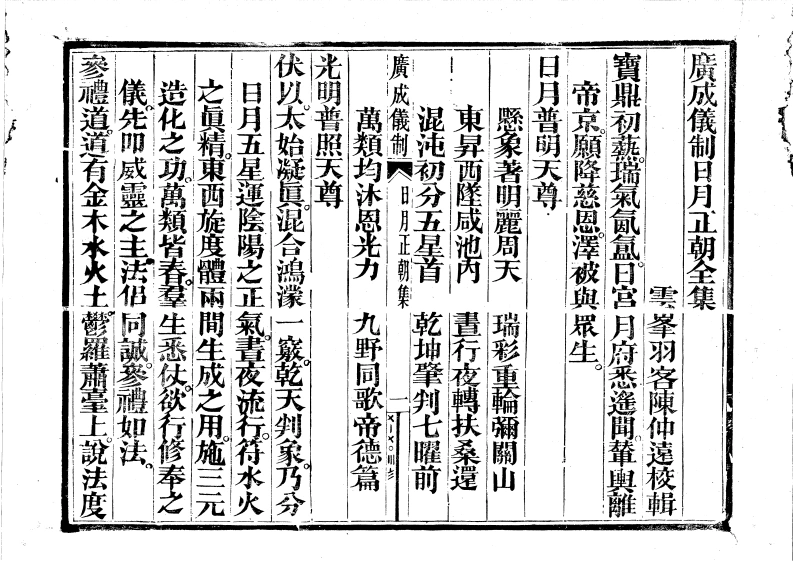 廣成儀制日月正朝全集
雲峯羽客陳仲遠校輯
寶鼎初爇。瑞氣氤氳。日宮月府悉遙聞。輦輿離
帝京。願降慈恩。澤被與眾生。
日月普明天尊
懸象著明麗周天 瑞彩重輪彌關山
東昇西墜咸池內 晝行夜轉扶桑還
混沌初分五星首 乾坤肇判七曜前
廣成儀制 日月正朝集 一
萬類均沐恩光力 九野同歌帝德篇
光明普照天尊
伏以。太始凝眞。混合鴻濛一竅。乾天判象。乃分
日月五星運陰陽之正氣。晝夜流行。符水火
之眞精。東西旋度體兩間生成之用。施三元
造化之功。萬類皆春。羣生悉仗。欲行修奉之
儀。先叩威靈之主。法侶同誠。參禮如法。
參禮道。道有金木水火土。鬱羅蕭臺上。說法度